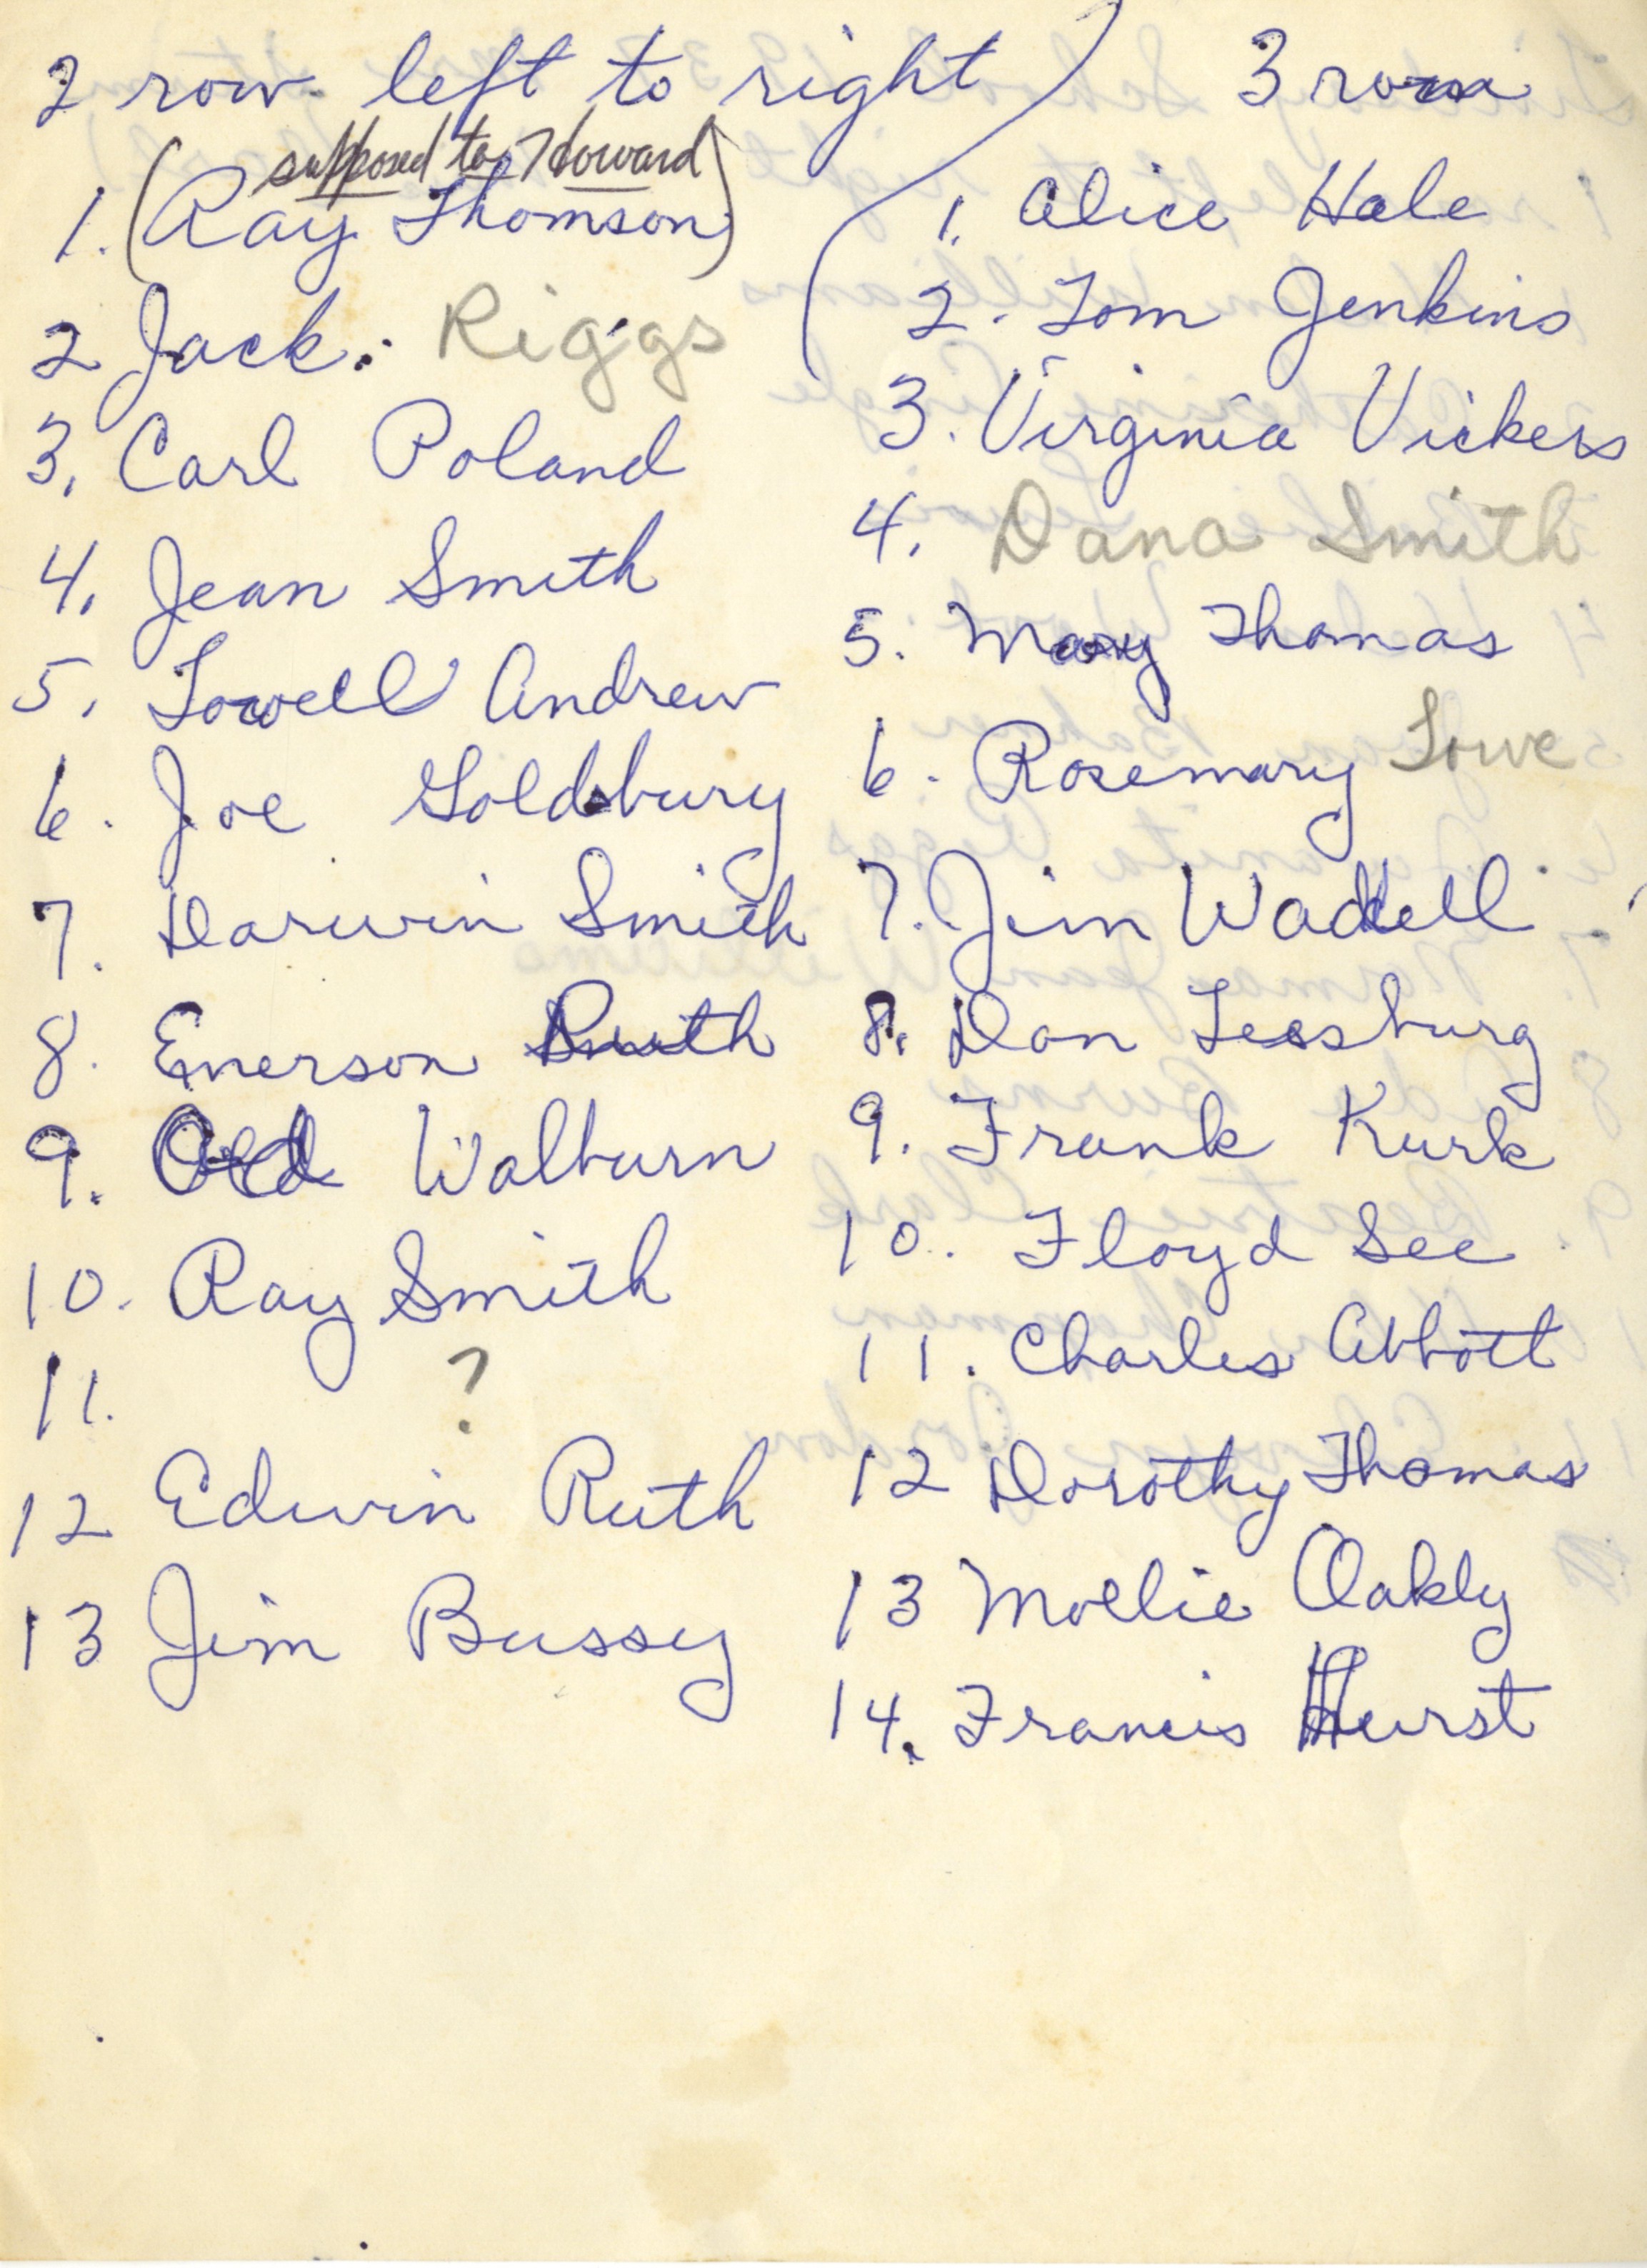 2 row left to right
supposed to Howard
1. (Ray Thomson)
2 Jack. Riggs
3. Carl Poland
4. Jean Smith
5. Lowell Andrew
6. Joe Goldsbury
7. Darwin Smith
8. Emerson
9. Walburn
10. Ray Smith
11. ?
12 Edwin Ruth
13 Jim Bussey
3 row
1. Alice Hale
2. Tom Jenkins
3. Virginia Vickers
4. Dana Smith
5. Mary Thomas
6. Rosemary Lowe
7. Jim Waddell
8. Don Leesburg
9. Frank Kurk
10. Floyd See
11. Charles Abbott
12 Dorothy Thomas
13 Mollie Oakly
14. Francis Hurst